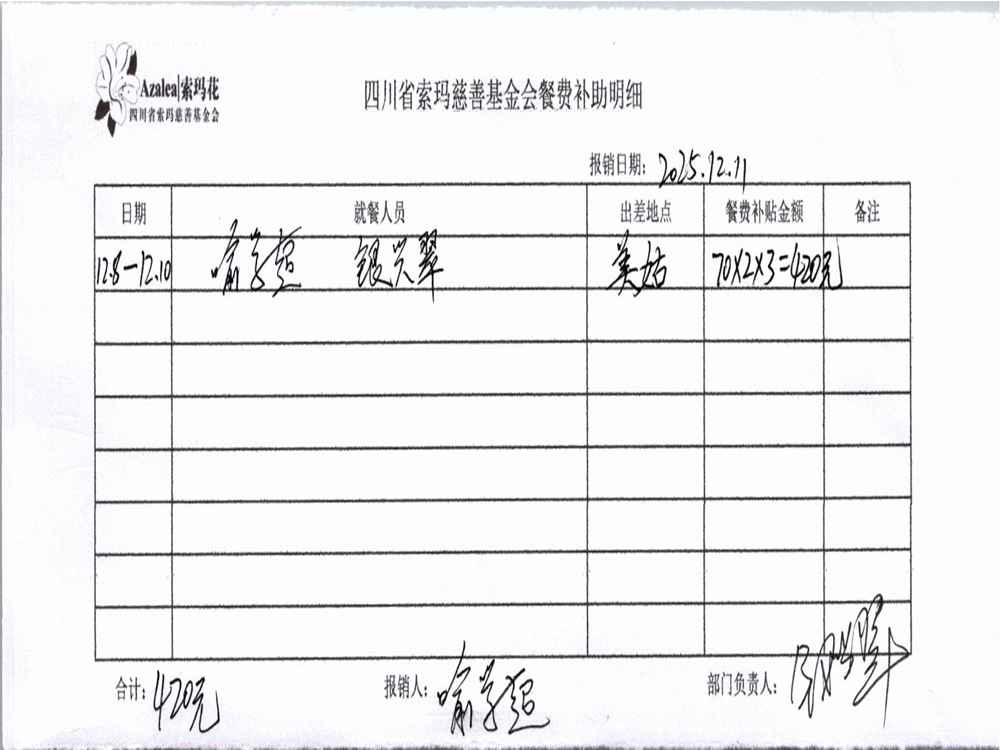 Azalea|索玛花
四川省索玛慈善基金会
四川省索玛慈善基金会餐费补助明细
报销日期：2025.12.11
日期 就餐人员 出差地点 餐费补贴金额 备注
12.8—12.10 喻学超 银兴翠 美姑 70×2×3=420元
合计：420元 报销人：喻学超 部门负责人：